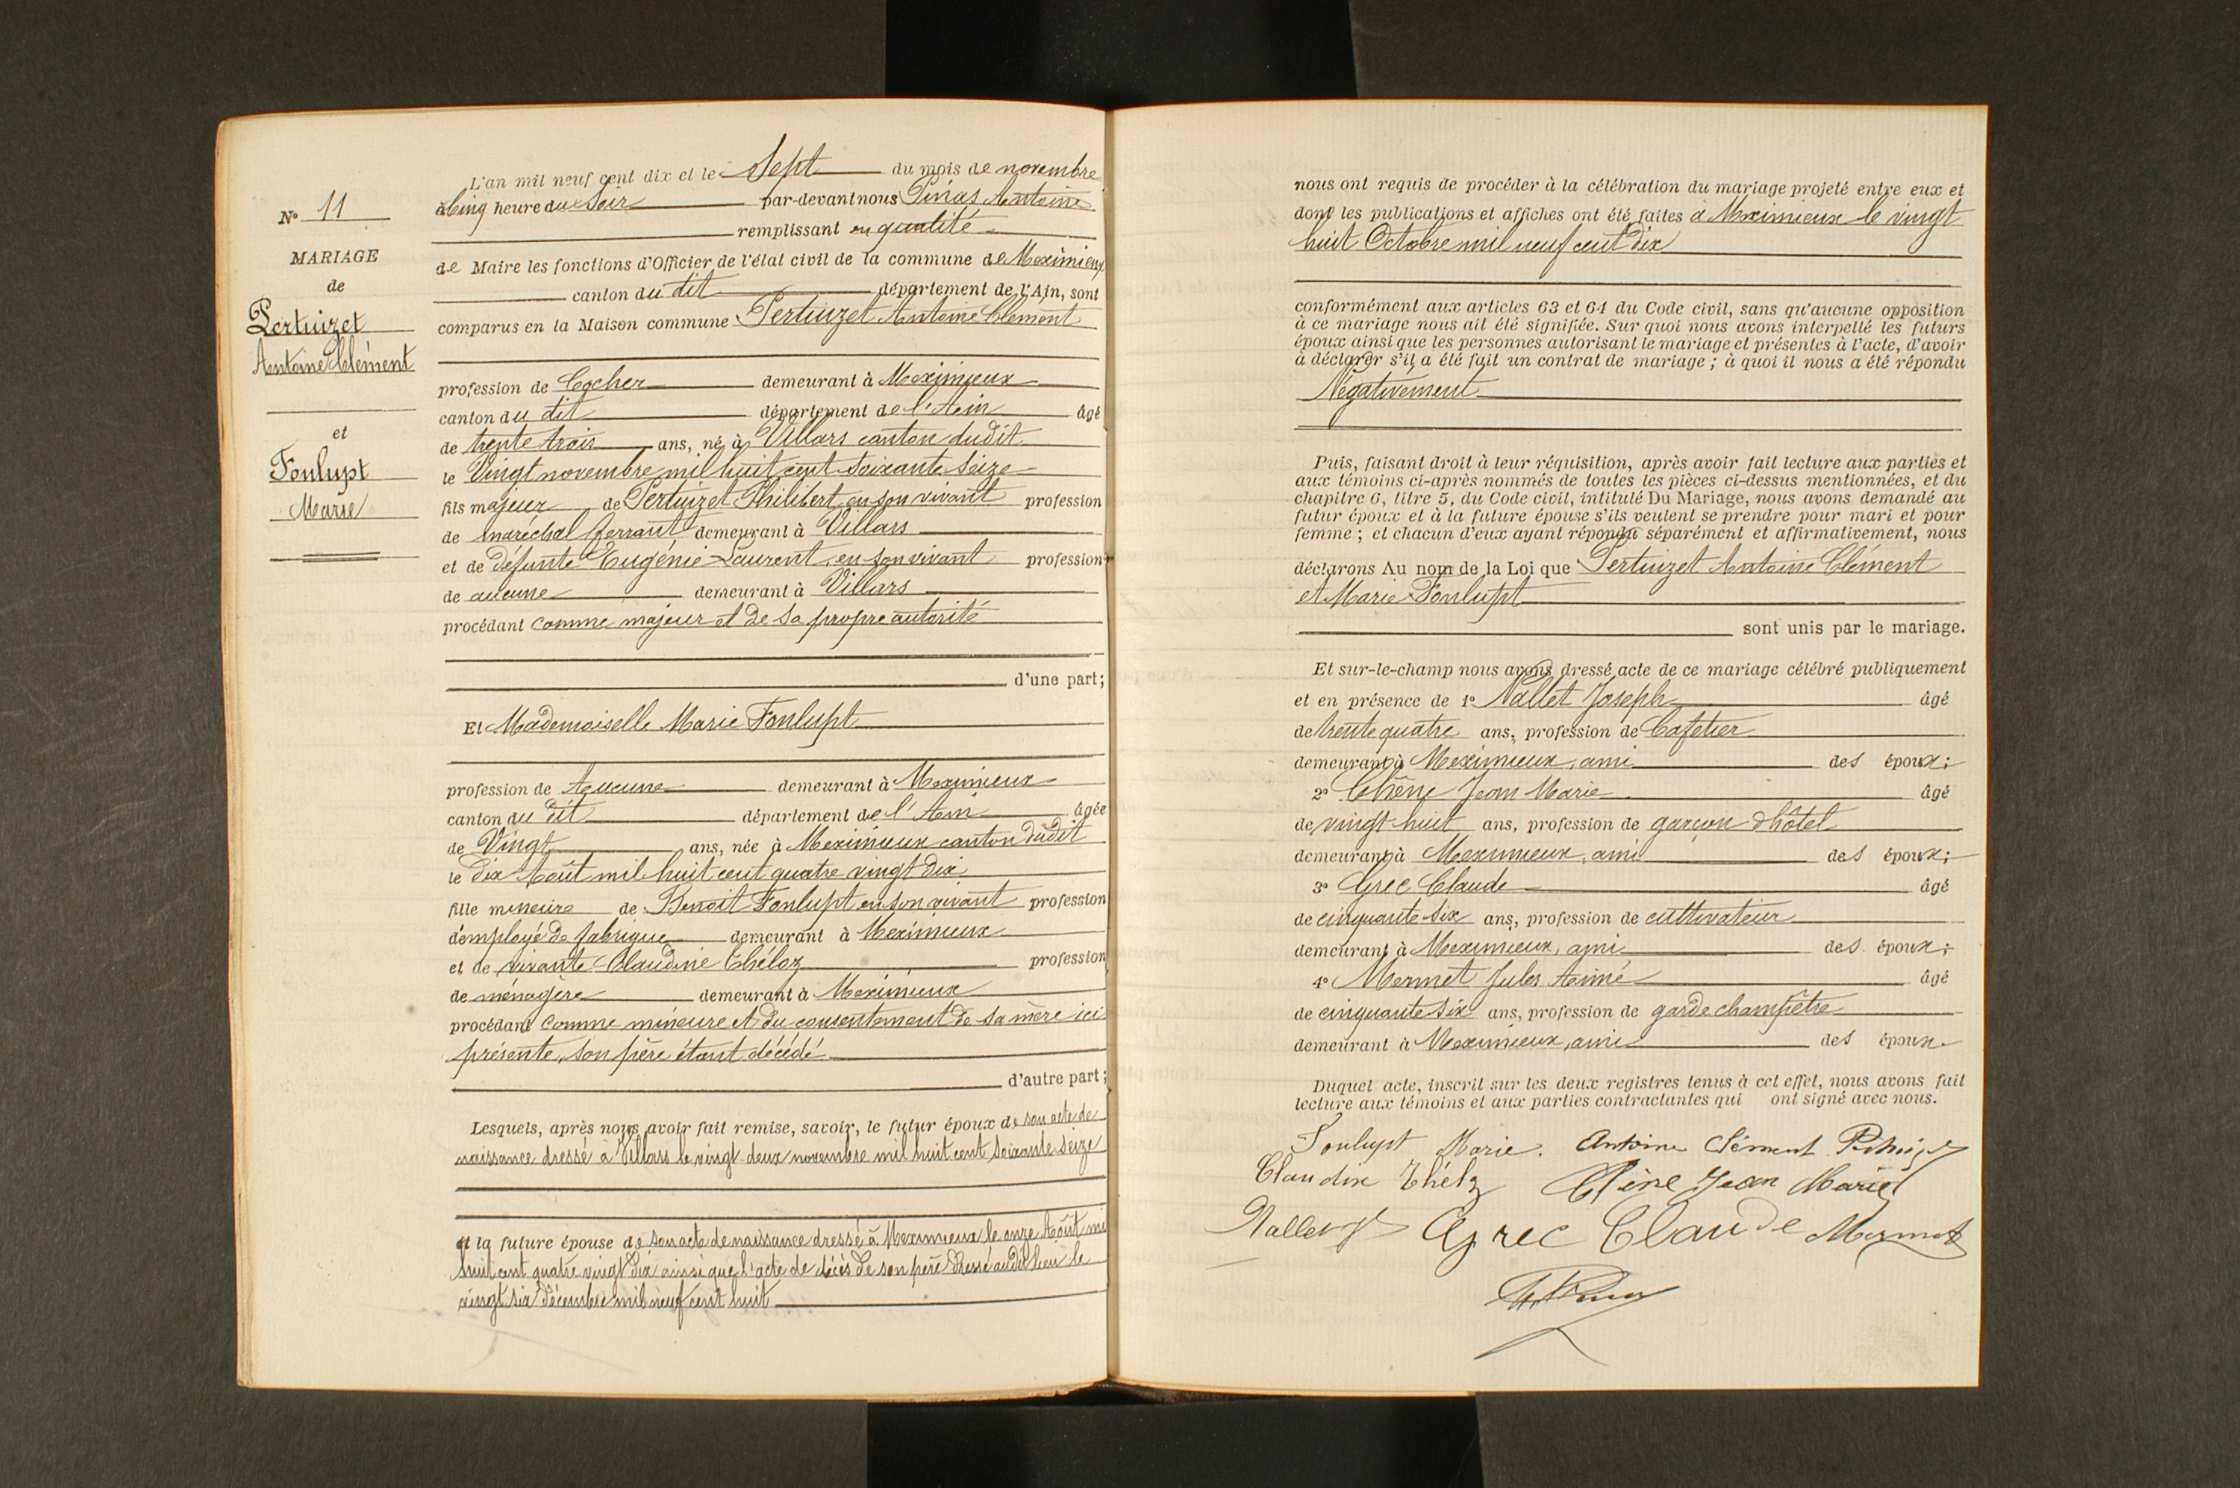 N° 11
MARIAGE
de
Pertuizet
Antoine Clément
et
Fonlupt
Marie
L'an mil neuf cent dix et le Sept du mois de novembre
à Cinq heure du Soir par-devant nous Pinas Antoine
remplissant en qualité
de Maire les fonctions d'Officier de l'état civil de la commune de Meximieux
canton du dit département de l'Ain, sont
comparus en la Maison commune Pertuizet Antoine Clément
profession de Cocher demeurant à Meximieux
canton du dit département de l'Ain âgé
de trente trois ans, né à Villars canton dudit
le Vingt novembre mil huit cent soixante seize
fils majeur de Pertuizet Philibert en son vivant profession
de maréchal ferrant demeurant à Villars
et de défunte Eugénie Laurent, en son vivant profession
de aucune demeurant à Villars
procédant comme majeur et de sa propre autorité
d'une part;
Et Mademoiselle Marie Fonlupt
profession de Aucune demeurant à Meximieux
canton du dit département de l'Ain âgée
de Vingt ans, née à Meximieux canton dudit
le dix Août mil huit cent quatre vingt dix
fille mineure de Benoit Fonlupt en son vivant profession
d'employé de fabrique demeurant à Meximieux
et de vivante Claudine Théloz profession
de ménagère demeurant à Meximieux
procédant comme mineure et du consentement de sa mère ici
présente, son père étant décédé
d'autre part;
Lesquels, après nous avoir fait remise, savoir, le futur époux de son acte de
naissance dressé à Villars le vingt deux novembre mil huit cent soixante seize
et la future épouse de son acte de naissance dressé à Meximieux le onze Août mil
huit cent quatre vingt dix ainsi que l'acte de décès de son père dressé audit lieu le
vingt six décembre mil neuf cent huit
nous ont requis de procéder à la célébration du mariage projeté entre eux et
dont les publications et affiches ont été faites à Meximieux le vingt
huit Octobre mil neuf cent dix
conformément aux articles 63 et 64 du Code civil, sans qu'aucune opposition
à ce mariage nous ait été signifiée. Sur quoi nous avons interpellé les futurs
époux ainsi que les personnes autorisant le mariage et présentes à l'acte, d'avoir
à déclarer s'il a été fait un contrat de mariage ; à quoi il nous a été répondu
Négativement
Puis, faisant droit à leur réquisition, après avoir fait lecture aux parties et
aux témoins ci-après nommés de toutes les pièces ci-dessus mentionnées, et du
chapitre 6, titre 5, du Code civil, intitulé Du Mariage, nous avons demandé au
futur époux et à la future épouse s'ils veulent se prendre pour mari et pour
femme ; et chacun d'eux ayant répondu séparément et affirmativement, nous
déclarons Au nom de la Loi que Pertuizet Antoine Clément
et Marie Fonlupt
sont unis par le mariage.
Et sur-le-champ nous avons dressé acte de ce mariage célébré publiquement
et en présence de 1° Nallet Joseph âgé
de trente quatre ans, profession de Cafetier
demeurant à Meximieux, ami des époux;
2° Chêne Jean Marie âgé
de vingt huit ans, profession de garçon d'hôtel
demeurant à Meximieux, ami des époux;
3° Grec Claude âgé
de cinquante six ans, profession de cultivateur
demeurant à Meximieux, ami des époux;
4° Mermet Jules Aimé âgé
de cinquante six ans, profession de garde champêtre
demeurant à Meximieux, ami des époux
Duquel acte, inscrit sur les deux registres tenus à cet effet, nous avons fait
lecture aux témoins et aux parties contractantes qui ont signé avec nous.
Fonlupt Marie. Antoine Clément
Claudine Chêne Jean Marie
Nallet J Grec Claude Mermet